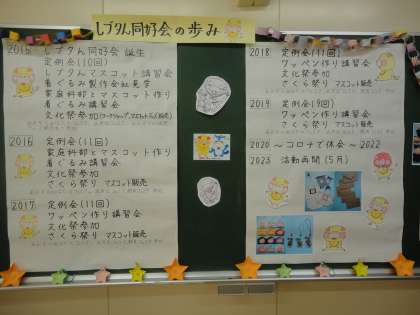 しブタん同好会の歩み
2015 しブタん同好会 誕生
定例会(10回)
しブタんマスコット講習会
着ぐるみ製作会社見学
家庭科部とマスコット作り
着ぐるみ講習会
文化祭参加
2016 定例会(11回)
家庭科部とマスコット作り
着ぐるみ講習会
文化祭参加
さくら祭り マスコット販売
2017 定例会(11回)
ワッペン作り講習会
文化祭参加
さくら祭り マスコット販売
2018 定例会(11回)
ワッペン作り講習会
文化祭参加
さくら祭り マスコット販売
2019 定例会(9回)
ワッペン作り講習会
さくら祭り マスコット販売
2020 〜コロナで休会〜2022
2023 活動再開(5月)